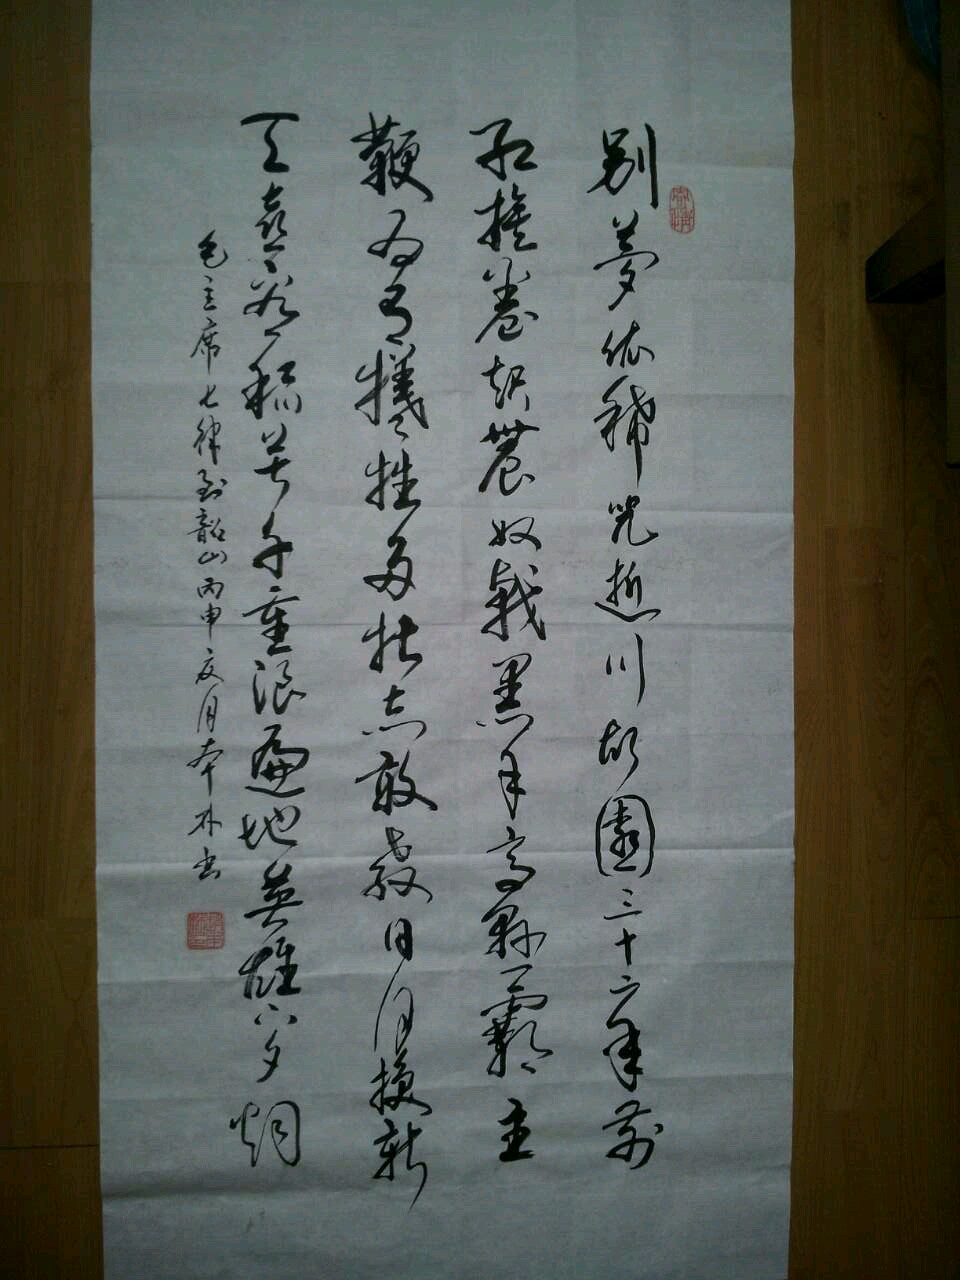 别夢依稀咒逝川故園三十二年前
红旗卷起農奴戟黑手高悬霸主
鞭为有犧牲多壮志敢教日月换新
天喜看稻菽千重浪遍地英雄下夕烟
毛主席七律到韶山丙申夏月本林书